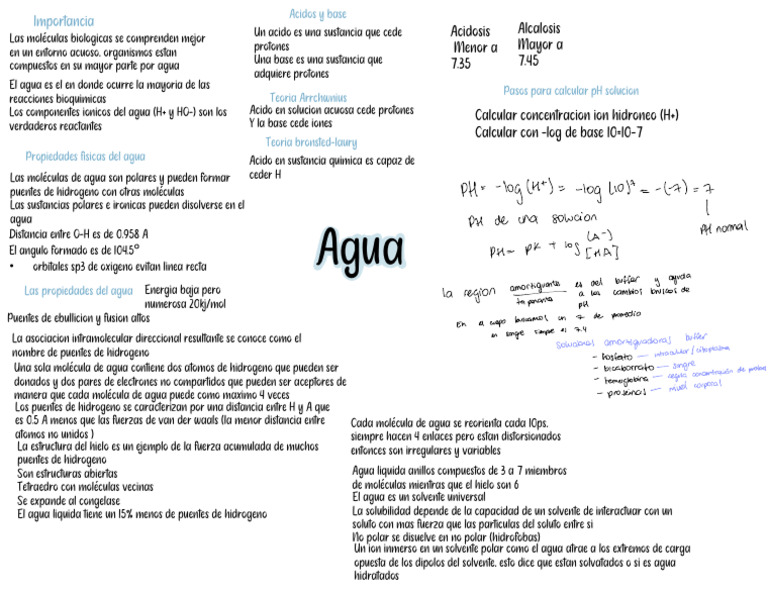 Importancia
Las moléculas biologicas se comprenden mejor
en un entorno acuoso, organismos estan
compuestos en su mayor parte por agua
El agua es el en donde ocurre la mayoria de las
reacciones bioquimicas
Los componentes ionicos del agua (H+ y HO-) son los
verdaderos reactantes
Propiedades fisicas del agua
Las moléculas de agua son polares y pueden formar
puentes de hidrogeno con otras moléculas
Las sustancias polares e ironicas pueden disolverse en el
agua
Distancia entre O-H es de 0.958 A
El angulo formado es de 104.5º
• orbitales sp3 de oxigeno evitan linea recta
Las propiedades del agua
Energia baja pero
numerosa 20kj/mol
Puentes de ebullicion y fusion altos
La asociacion intramolecular direccional resultante se conoce como el
nombre de puentes de hidrogeno
Una sola molécula de agua contiene dos atomos de hidrogeno que pueden ser
donados y dos pares de electrones no compartidos que pueden ser aceptores de
manera que cada molécula de agua puede como maximo 4 veces
Los puentes de hidrogeno se caracterizan por una distancia entre H y A que
es 0.5 A menos que las fuerzas de van der waals (la menor distancia entre
atomos no unidos )
La estructura del hielo es un ejemplo de la fuerza acumulada de muchos
puentes de hidrogeno
Son estructuras abiertas
Tetraedro con moléculas vecinas
Se expande al congelase
El agua liquida tiene un 15% menos de puentes de hidrogeno
Acidos y base
Un acido es una sustancia que cede
protones
Una base es una sustancia que
adquiere protones
Teoria Arrchanius
Acido en solucion acuosa cede protones
Y la base cede iones
Teoria bronsted-laury
Acido en sustancia quimica es capaz de
ceder H
Agua
Acidosis
Menor a
7.35
Alcalosis
Mayor a
7.45
Pasos para calcular pH solucion
Calcular concentracion ion hidroneo (H+)
Calcular con -log de base 10=10-7
PH = -log (H+) = -log (10)⁷ = -(-7) = 7
PH normal
PH de una solucion
PH = PK + log (A-)
[HA]
la region amortiguante es del buffer y ayuda
tampante a los cambios bruscos de
PH
En el cuerpo buscamos un 7 de promedio
en sangre siempre es 7.4
Soluciones amortiguadoras buffer
- fosfato — intracelular/citoplasma
- bicarbonato — sangre
- hemoglobina — regula concentración de
- proteinas — nivel corporal
Cada molécula de agua se reorienta cada 10ps,
siempre hacen 4 enlaces pero estan distorsionados
entonces son irregulares y variables
Agua liquida anillos compuestos de 3 a 7 miembros
de moléculas mientras que el hielo son 6
El agua es un solvente universal
La solubilidad depende de la capacidad de un solvente de interactuar con un
soluto con mas fuerza que las particulas del soluto entre si
No polar se disuelve en no polar (hidrofobas)
Un ion inmerso en un solvente polar como el agua atrae a los extremos de carga
opuesta de los dipolos del solvente, esto dice que estan solvatados o si es agua
hidratados